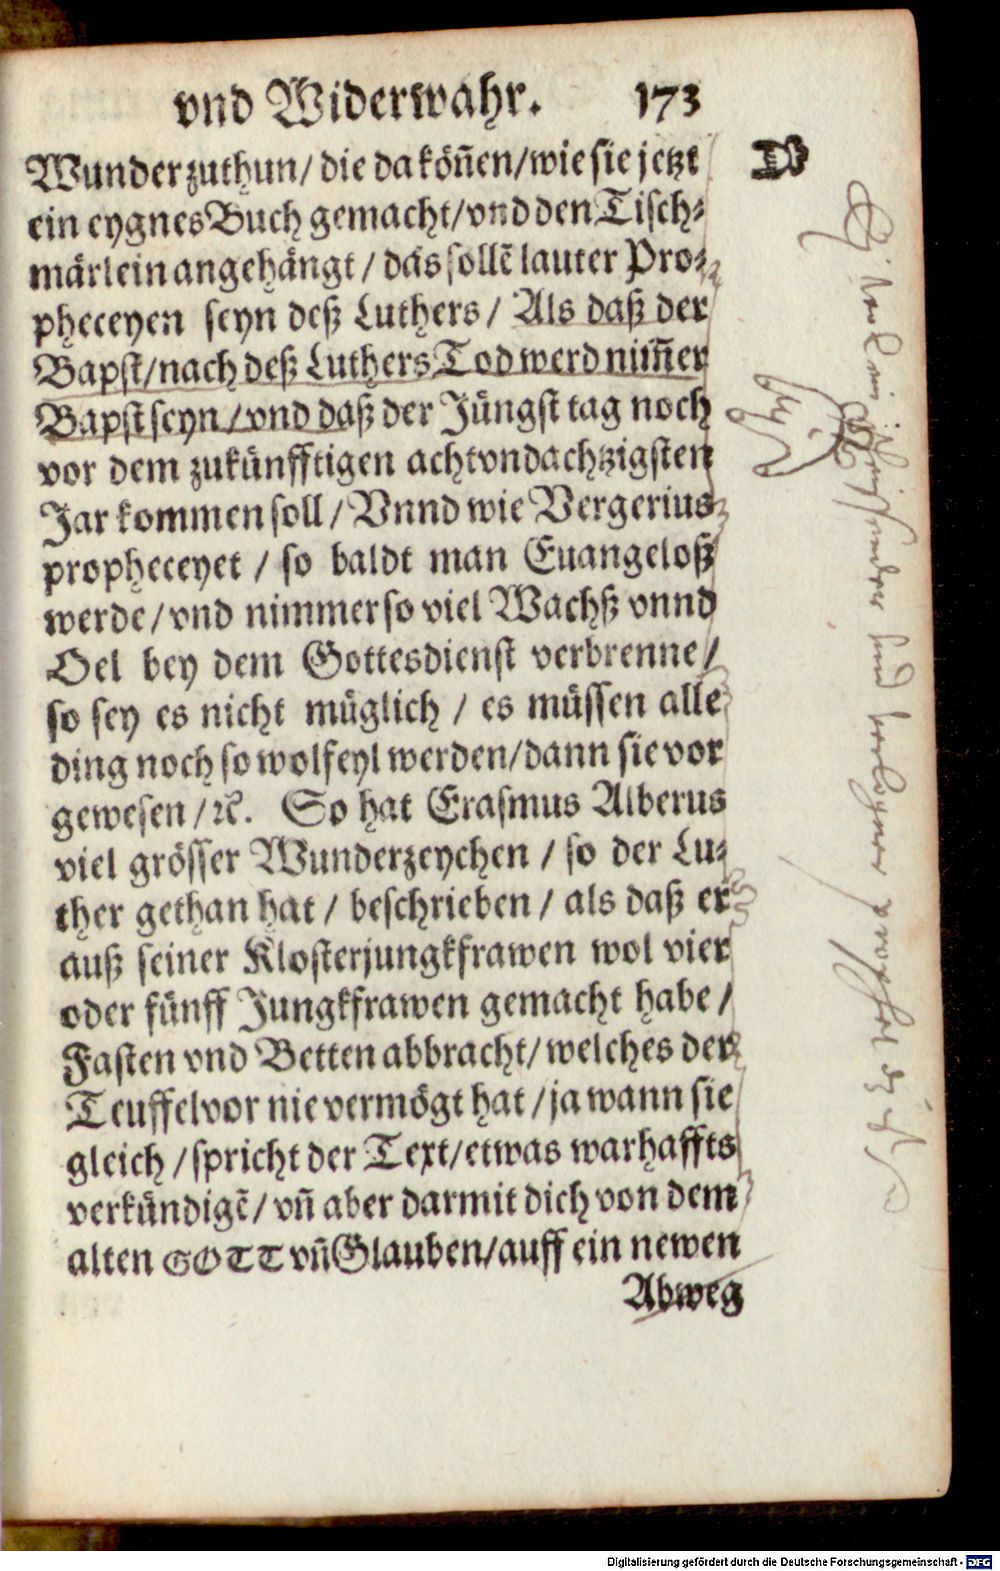 vnd Widerwahr. 173
Wunder zuthun/ die da köñen/ wie sie jetzt
ein eygnes Buch gemacht/ vnd den Tisch-
märlein angehängt/ das sollẽ lauter Pro-
pheceyen seyn deß Luthers/ Als daß der
Bapst/ nach deß Luthers Tod werd nim̃er
Bapst seyn/ vnd daß der Jüngst tag noch
vor dem zukünfftigen achtvndachtzigsten
Jar kommen soll/ Vnnd wie Vergerius
propheceyet/ so baldt man Euangeloß
werde/ vnd nimmer so viel Wachß vnnd
Oel bey dem Gottesdienst verbrenne/
so sey es nicht müglich/ es müssen alle
ding noch so wolfeyl werden/ dann sie vor
gewesen/ ꝛc. So hat Erasmus Alberus
viel grösser Wunderzeychen/ so der Lu-
ther gethan hat/ beschrieben/ als daß er
auß seiner Klosterjungkfrawen wol vier
oder fünff Jungkfrawen gemacht habe/
Fasten vnd Betten abbracht/ welches der
Teuffel vor nie vermögt hat/ ja wann sie
gleich/ spricht der Text/ etwas warhaffts
verkündigẽ/ vñ aber darmit dich von dem
alten GOTT vñ Glauben/ auff ein newen
Abweg
Digitalisierung gefördert durch die Deutsche Forschungsgemeinschaft - DFG